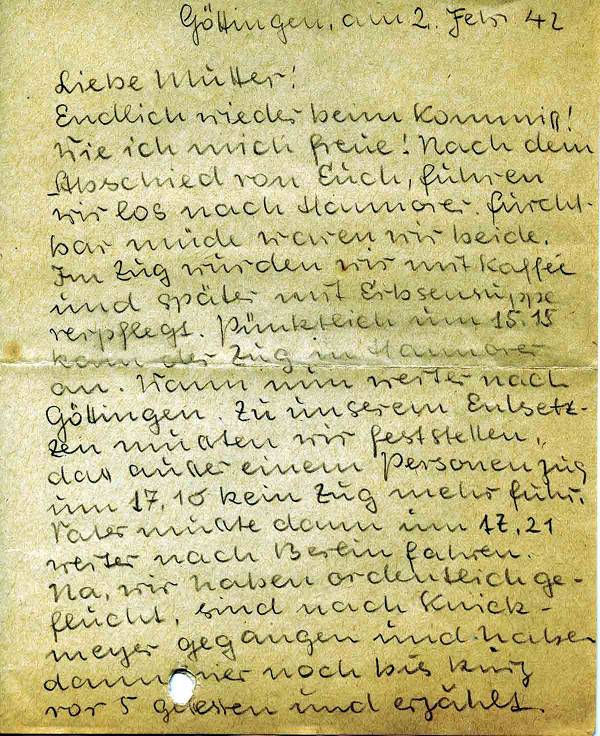 Göttingen, am 2. Febr 42
Liebe Mutter!
Endlich wieder beim Kommiß!
Wie ich mich freue! Nach dem
Abschied von Euch, fuhren
wir los nach Hannover. furcht-
bar müde waren wir beide.
Im Zug wurden wir mit Kaffee
und später mit Erbsensuppe
verpflegt. Pünktlich um 15.15
kam der Zug in Hannover
an. Wann nun weiter nach
Göttingen. Zu unserem Entsetz-
zen mußten wir feststellen,
daß außer einem Personenzug
um 17.10 kein Zug mehr fuhr.
Vater mußte dann um 17.21
weiter nach Berlin fahren.
Na, wir haben ordentlich ge-
flucht, sind nach Knick-
meyer gegangen und haben
dann hier noch bis kurz
vor 5 gesessen und erzählt.